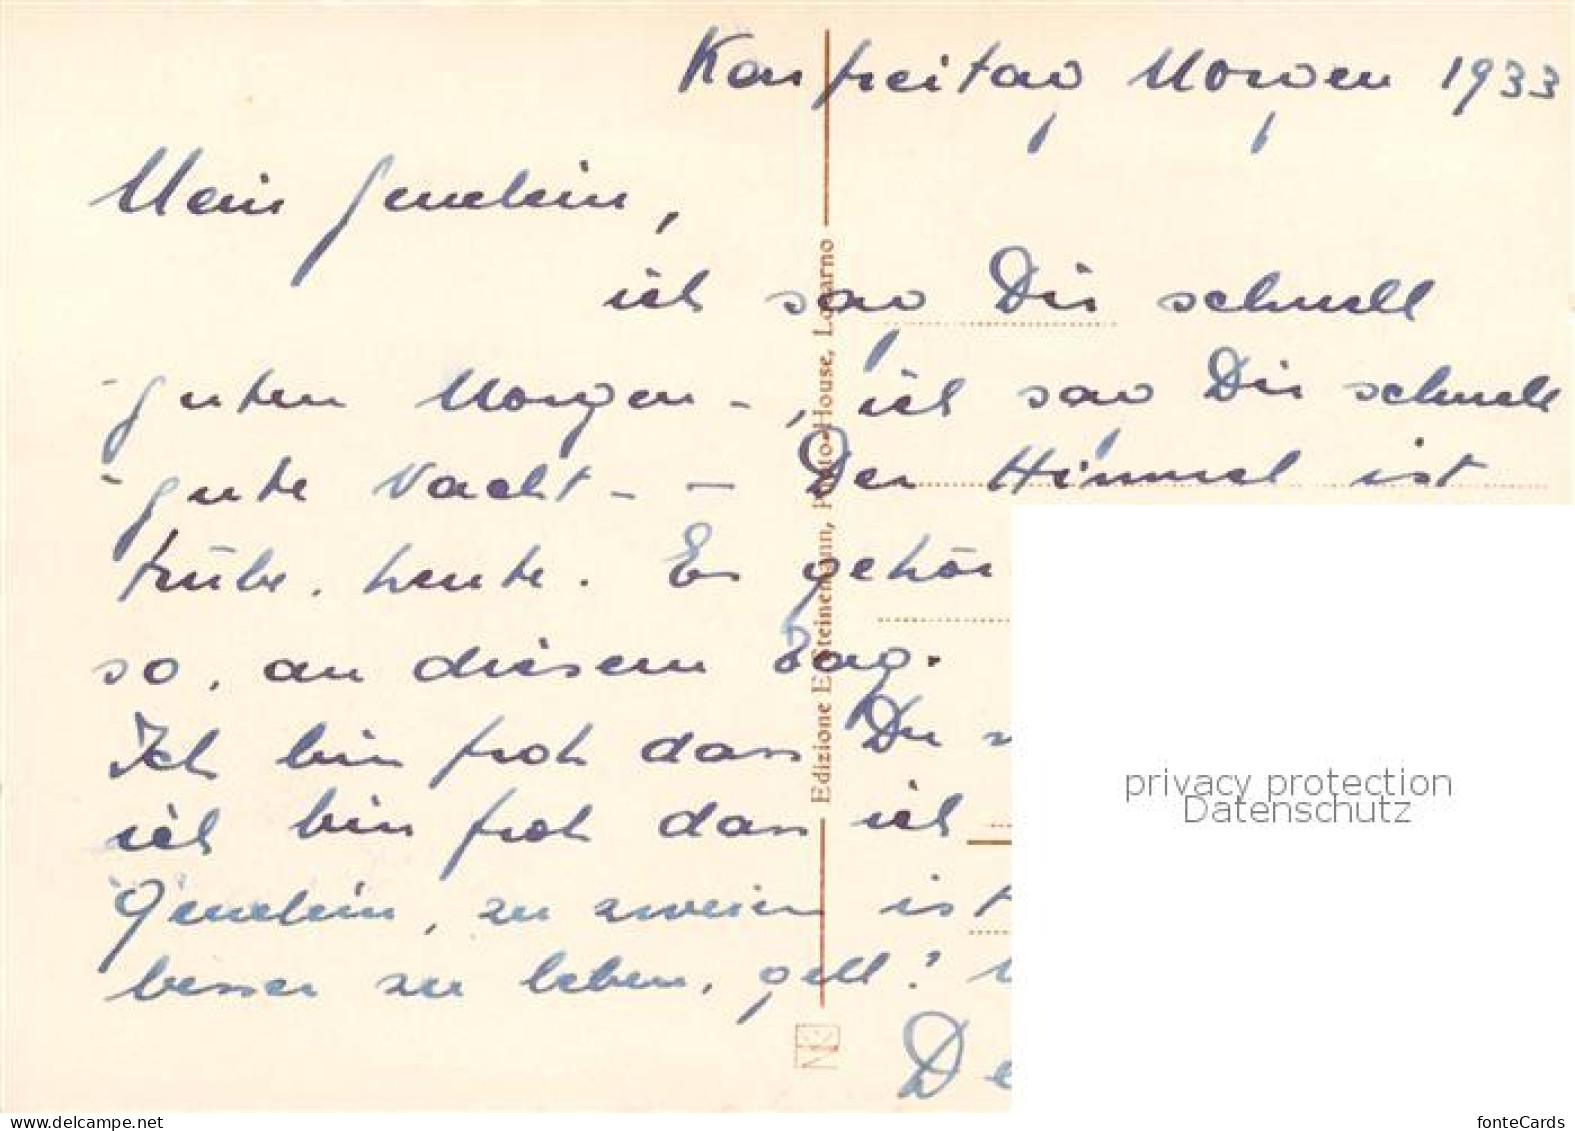 Karfreitag Morgen 1933
Mein Genelein,
ich sag Dir schnell
guten Morgen -, ich sag Dir schnell
gute Nacht - - Der Himmel ist
trübe, heute. Es gehör
so, an diesem Tag.
Ich bin froh dass Du
ich bin froh dass ich
Genelein, zu zweien ist
besser zu leben, gell?
De
Edizione E. Steinemann, Photo-House, Locarno
privacy protection
Datenschutz
delcampe.net
fonteCards